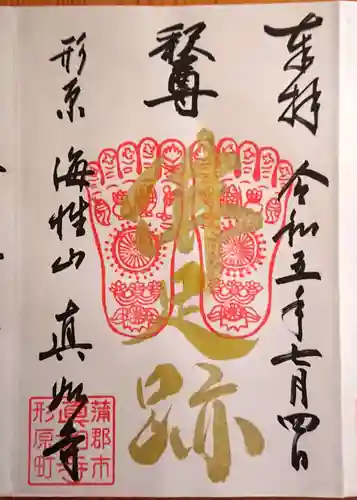 奉拝 令和五年七月四日
釈尊
佛足跡
形原 海性山 真如寺
蒲郡市
形原町